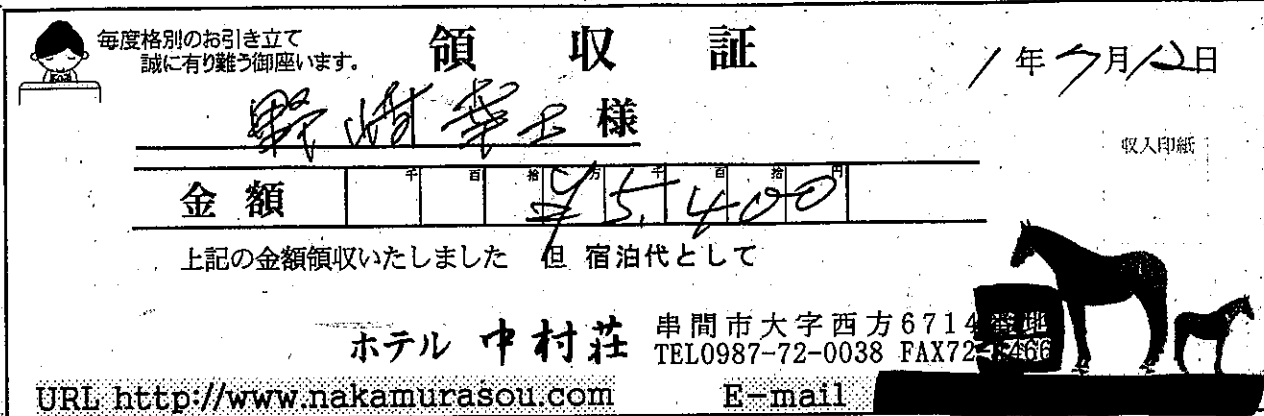 毎度格別のお引き立て
誠に有り難う御座います。
領収証
1年7月12日
野﨑幸士様
収入印紙
金額 千 百 拾 万 千 百 拾 円
¥5,400
上記の金額領収いたしました 但 宿泊代として
ホテル 中村荘
串間市大字西方6714番地
TEL0987-72-0038 FAX72-
URL http://www.nakamurasou.com E-mail